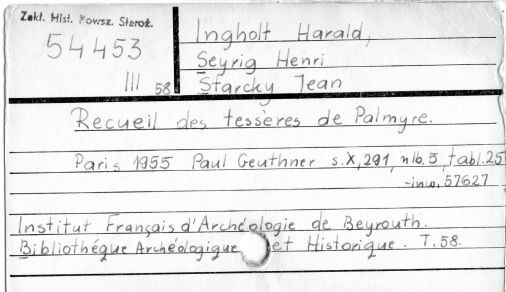 Zakł. Hist. Powsz. Staroż.
54453
III 58
Ingholt Harald,
Seyrig Henri
Starcky Jean
Recueil des tesseres de Palmyre.
Paris 1955 Paul Geuthner s.X, 291, nlb. 5, tabl. 25
inw. 57627
Institut Français d'Archéologie de Beyrouth.
Bibliothégue Archéologique et Historique. T. 58.